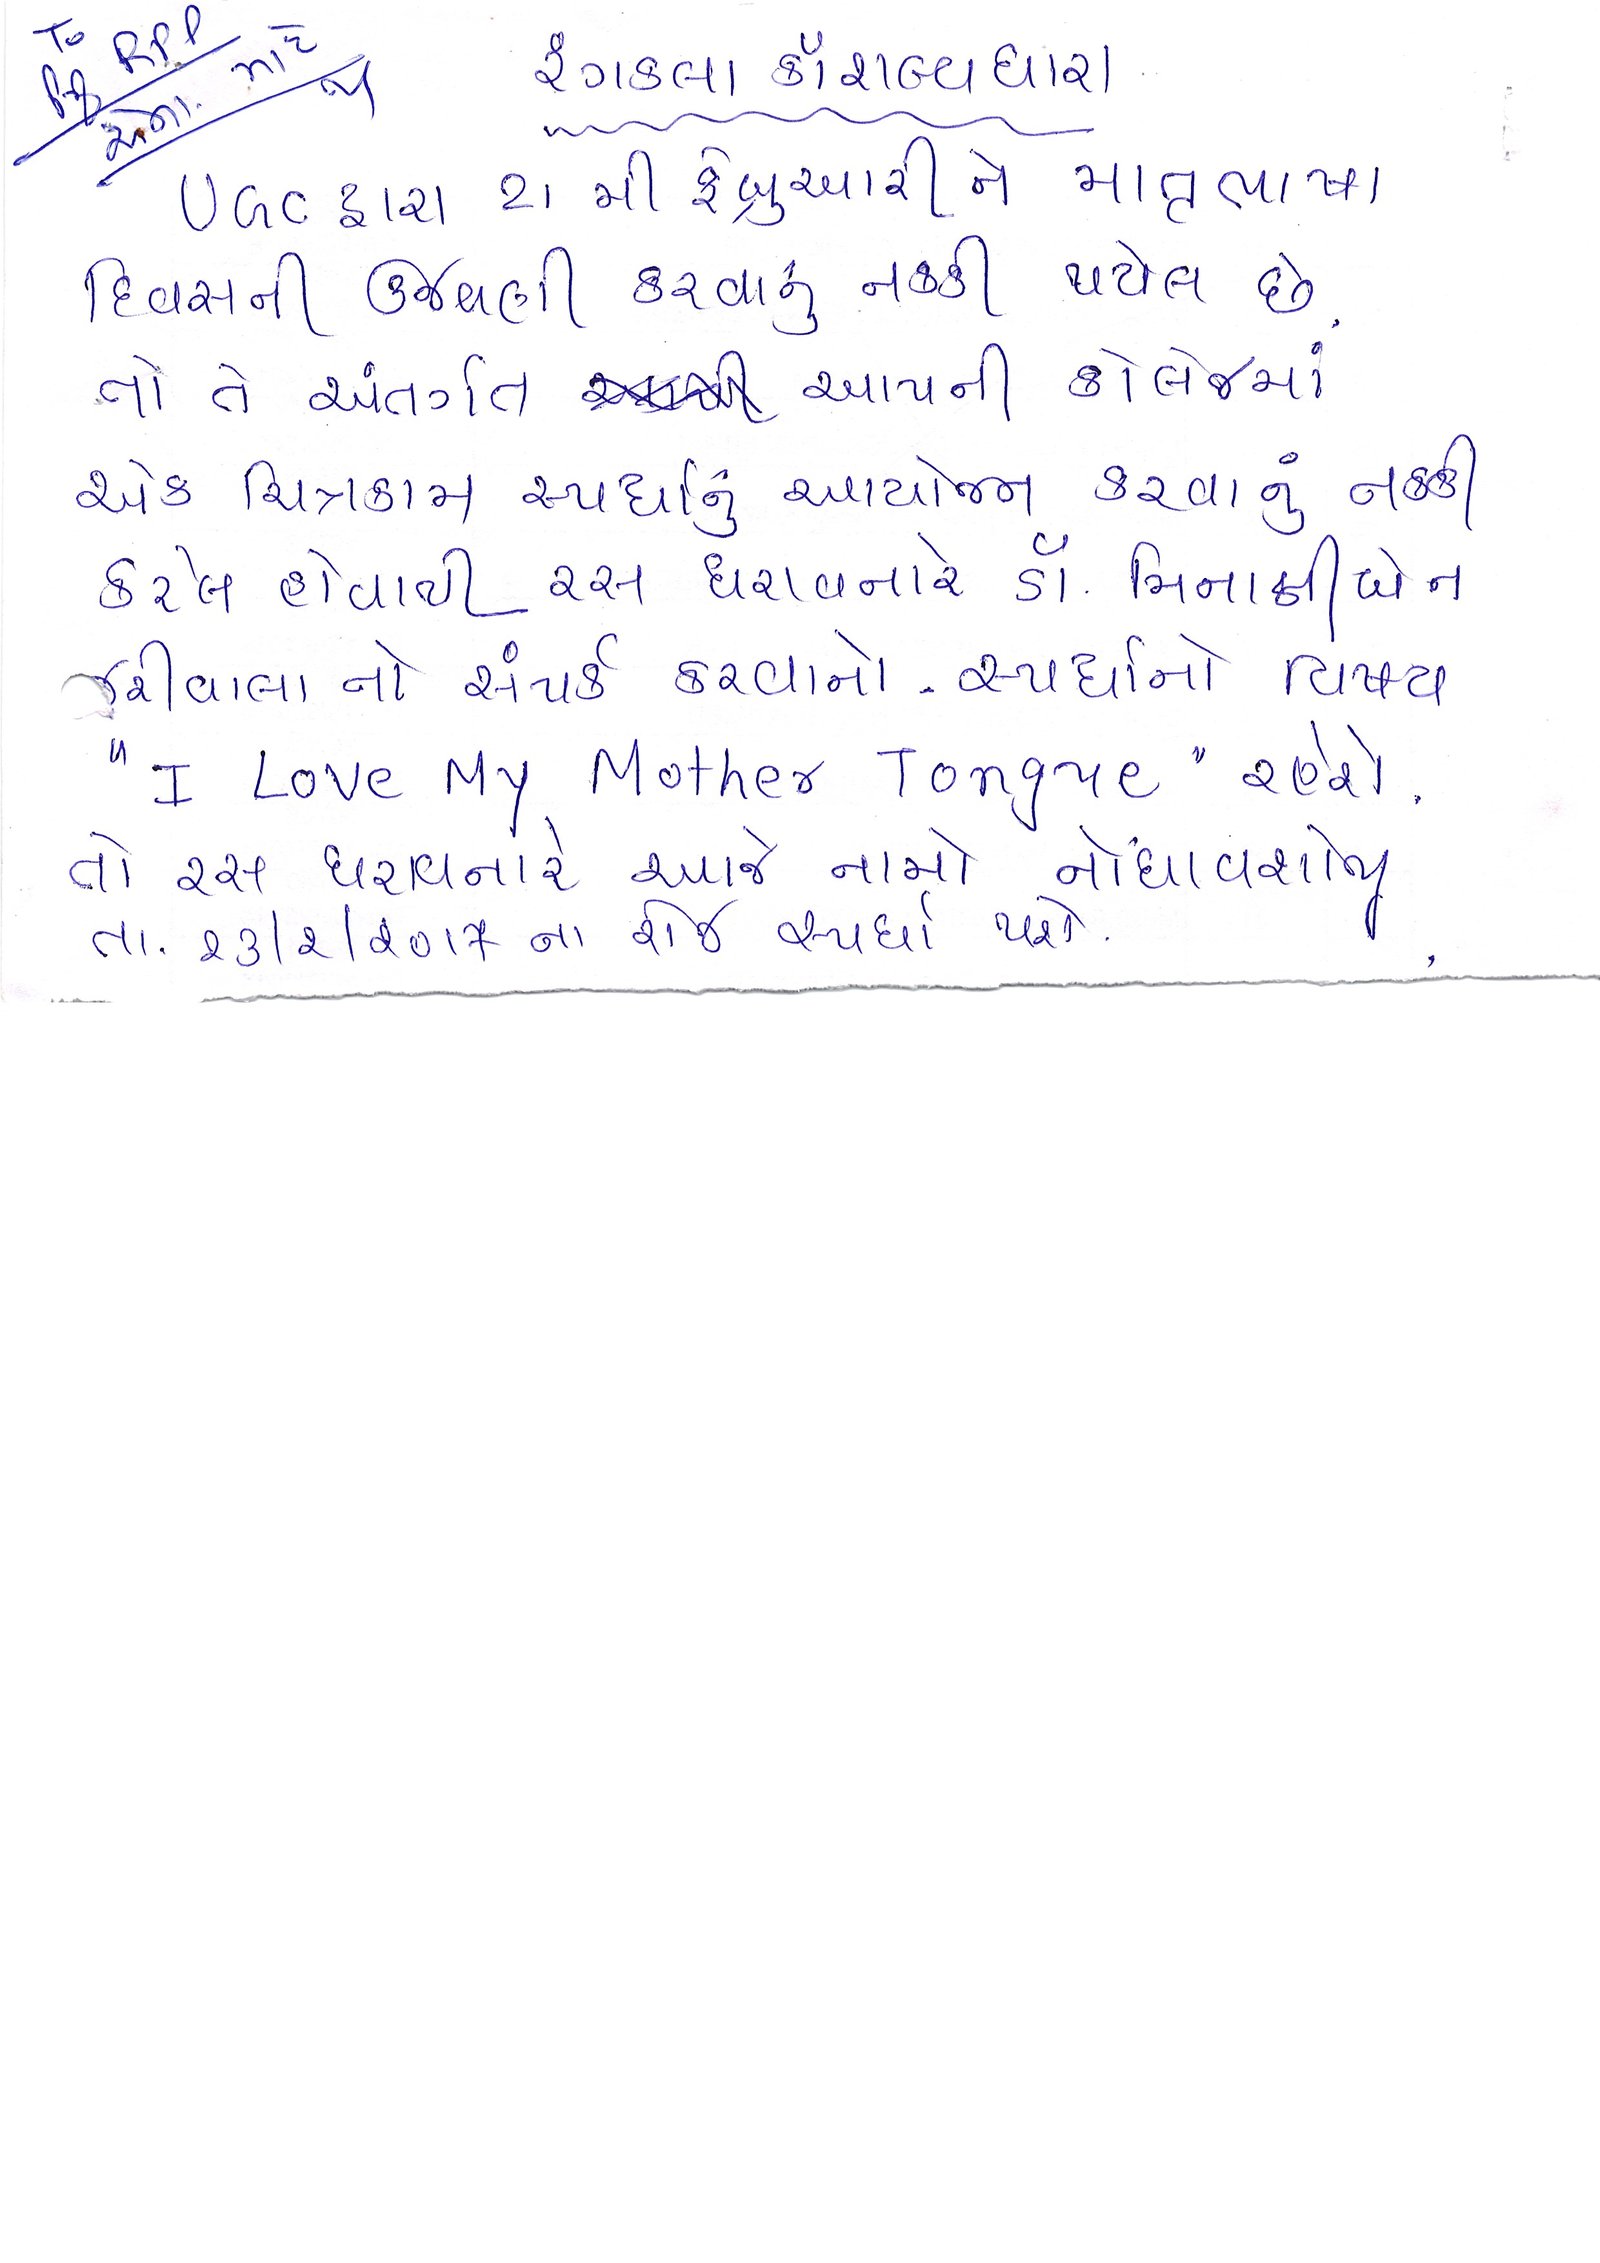 To RPP
માટે
રંગકલા કૌશલ્ય ધારા
UGC દ્વારા 21 મી ફેબ્રુઆરી ને માતૃભાષા
દિવસની ઉજવણી કરવાનું નક્કી થયેલ છે.
તો તે અંતર્ગત આપની કોલેજમાં
એક ચિત્રકામ સ્પર્ધાનું આયોજન કરવાનું નક્કી
કરેલ હોવાથી રસ ધરાવનારે ડૉ. મિનાક્ષીબેન
જરીવાલા નો સંપર્ક કરવાનો. સ્પર્ધાનો વિષય
"I Love My Mother Tongue" રહેશે.
તો રસ ધરાવનારે આજે નામો નોંધાવશોજી
તા. ૨૩/૨/૨૦૧૭ ના રોજ સ્પર્ધા થશે.